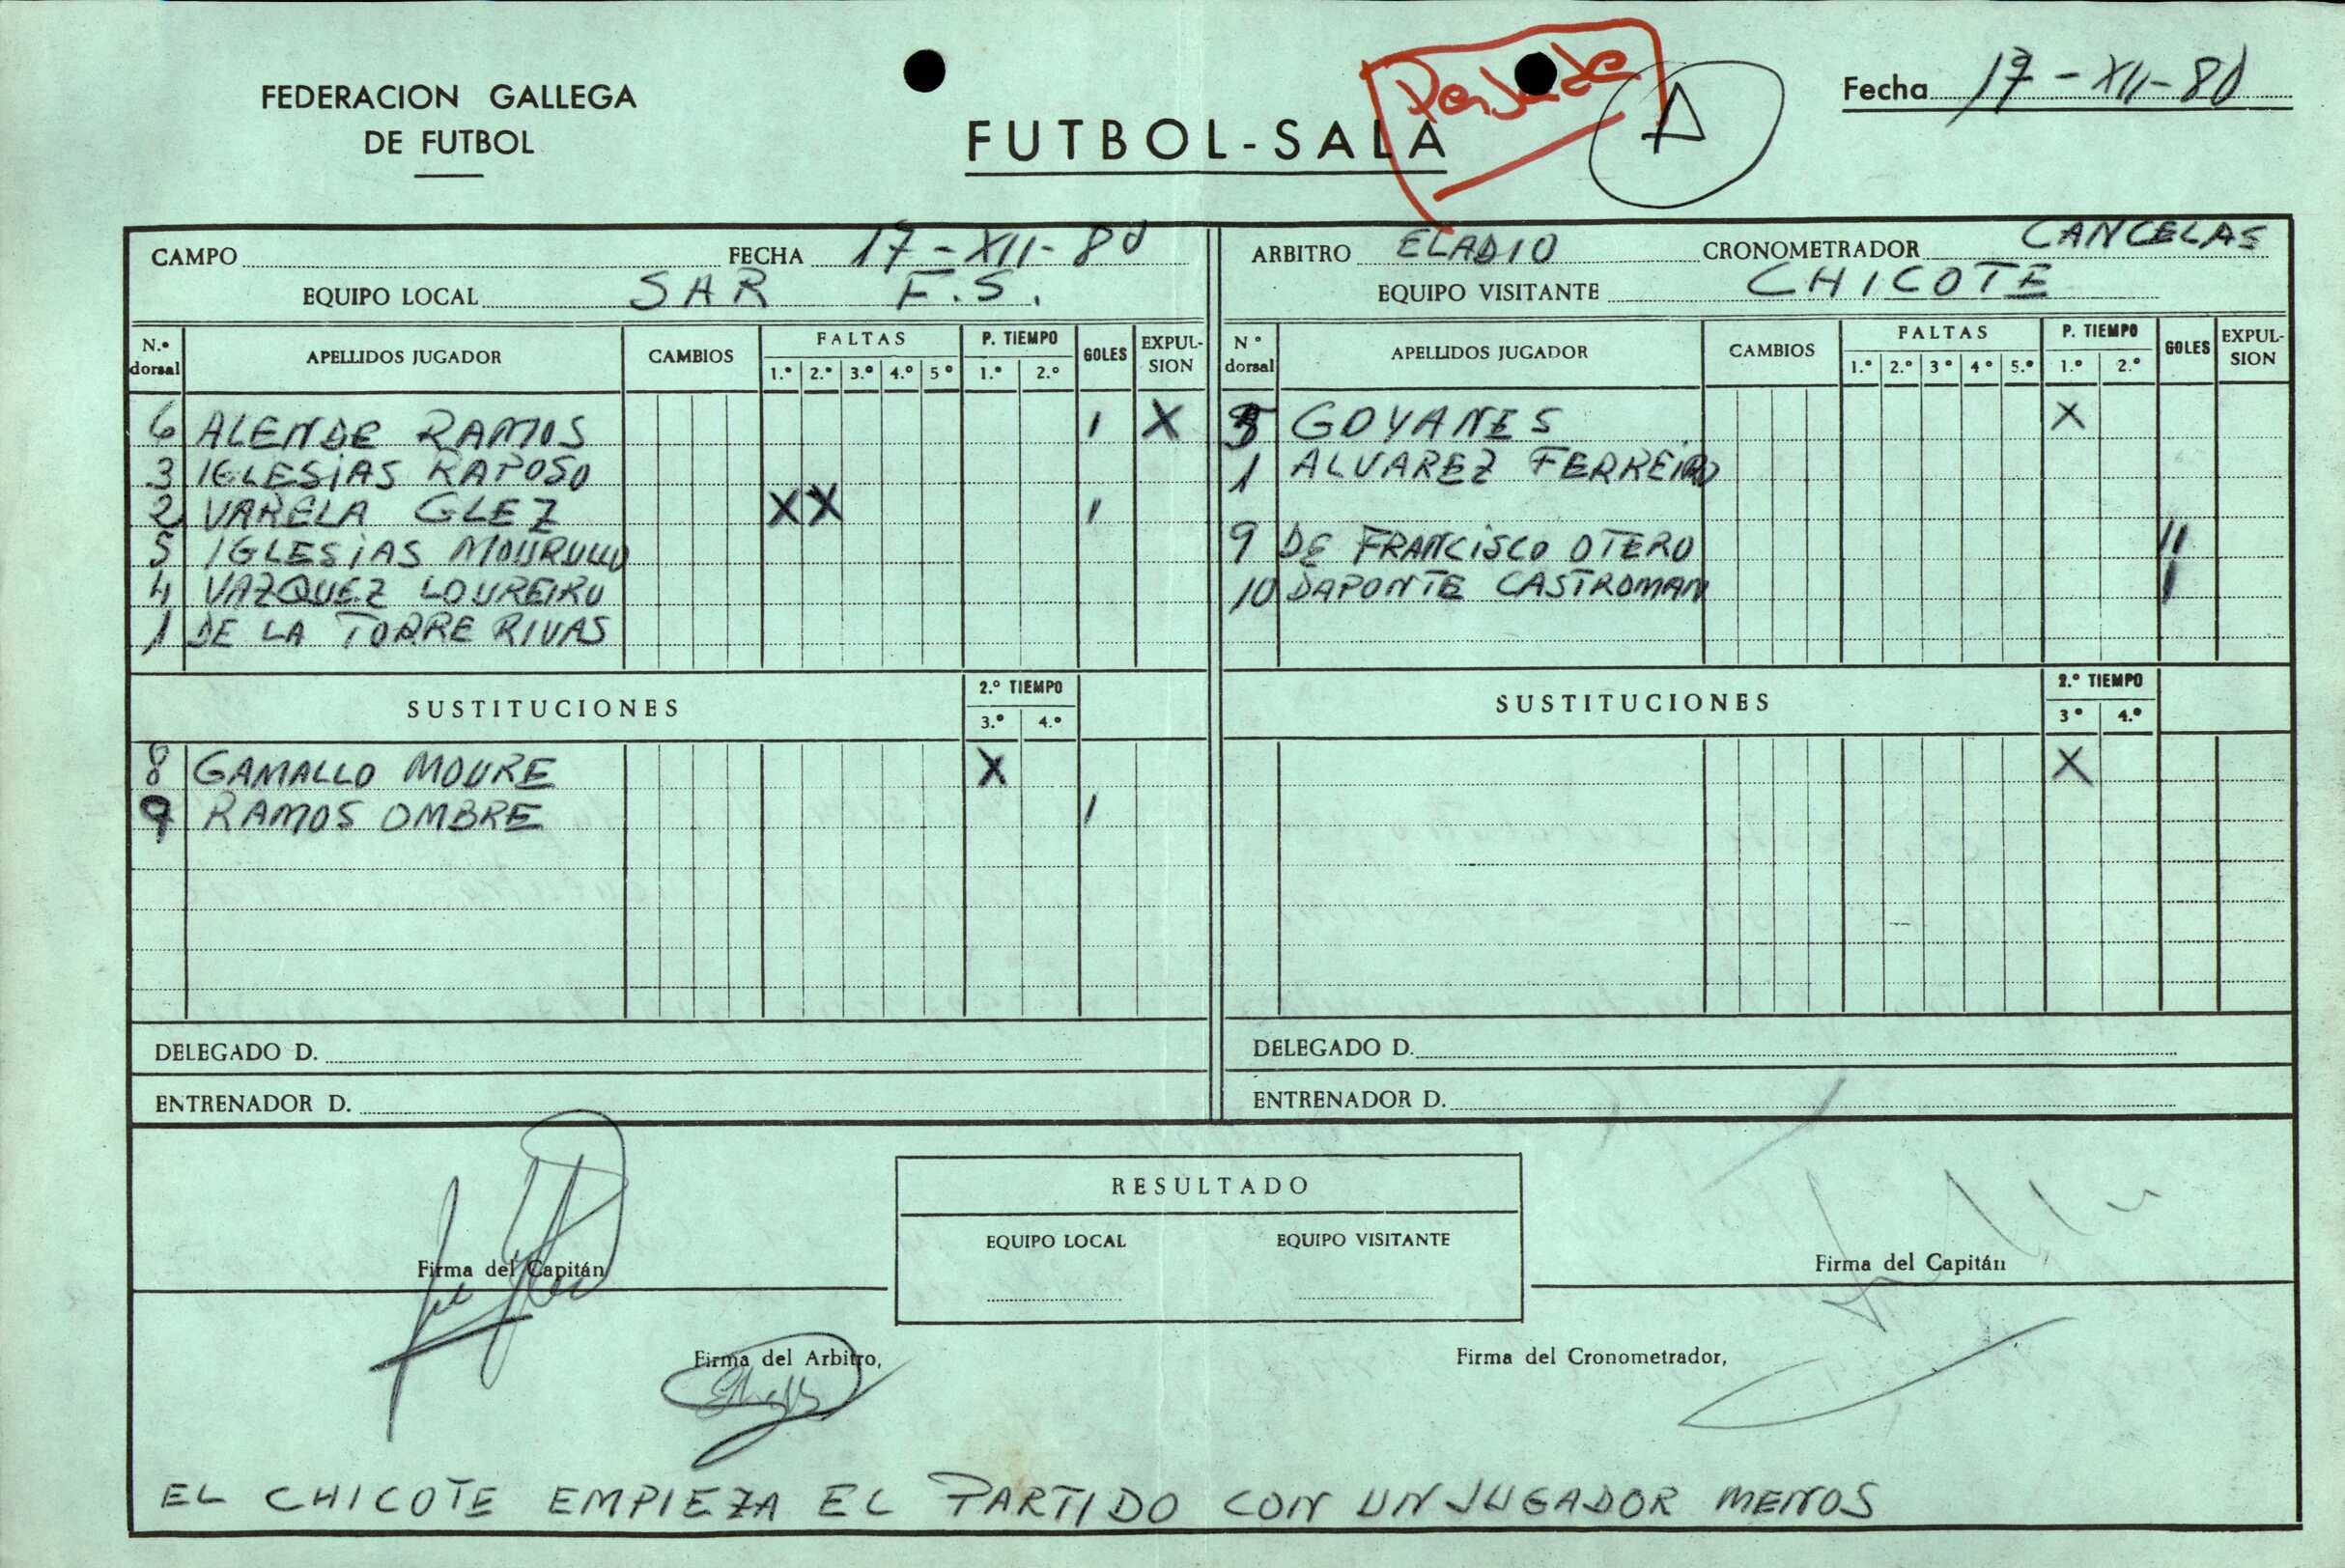 FEDERACION GALLEGA
DE FUTBOL
FUTBOL-SALA
A
Fecha 17-XII-80
CAMPO FECHA 17-XII-80
EQUIPO LOCAL SAR F.S.
N.º dorsal APELLIDOS JUGADOR CAMBIOS FALTAS 1.º 2.º 3.º 4.º 5º P. TIEMPO 1.º 2.º GOLES EXPULSION
6 ALENDE RAMOS I X
3 IGLESIAS RAPOSO
2 VARELA GLEZ X X I
5 IGLESIAS MOURULLO
4 VAZQUEZ LOUREIRO
1 DE LA TORRE RIVAS
SUSTITUCIONES 2.º TIEMPO 3.º 4.º
8 GAMALLO MOURE X
9 RAMOS OMBRE I
DELEGADO D.
ENTRENADOR D.
ARBITRO ELADIO CRONOMETRADOR CANCELAS
EQUIPO VISITANTE CHICOTE
Nº dorsal APELLIDOS JUGADOR CAMBIOS FALTAS 1.º 2.º 3º 4º 5.º P. TIEMPO 1.º 2.º GOLES EXPULSION
GOYANES X
1 ALVAREZ FERREIRO
9 DE FRANCISCO OTERO II
10 DAPONTE CASTROMAN I
SUSTITUCIONES 2.º TIEMPO 3º 4.º
X
DELEGADO D.
ENTRENADOR D.
RESULTADO
EQUIPO LOCAL EQUIPO VISITANTE
Firma del Capitán
Firma del Capitán
Firma del Arbitro,
Firma del Cronometrador,
EL CHICOTE EMPIEZA EL PARTIDO CON UN JUGADOR MENOS